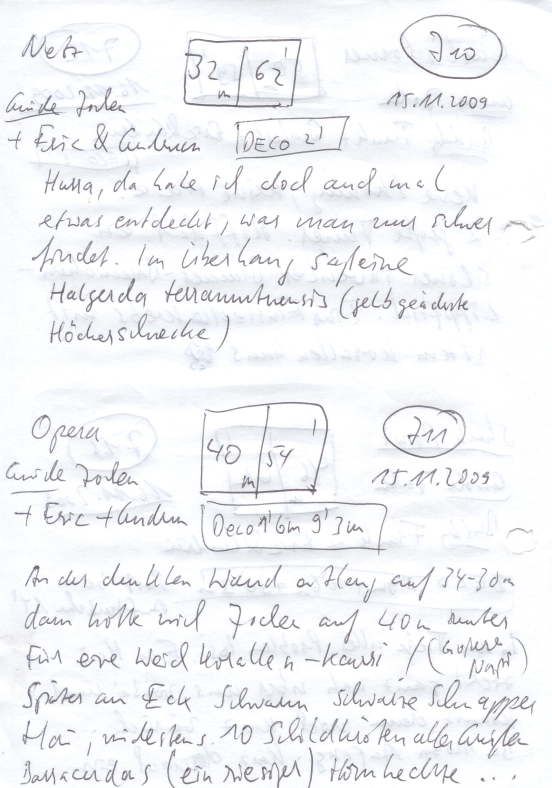 Netz
32 m | 62'
710
15.11.2009
Guide Jochen
+ Eric & Andrea
DECO 2'
Hurra, da habe ich doch auch mal
etwas entdeckt, was man nur schwer
findet. Im Überhang saß eine
Halgerda terramtuensis (gelbgeäderte
Höckerschnecke)
Opera
40 m | 54'
711
15.11.2009
Guide Jochen
+ Eric + Andrea
Deco 1' 6m 9' 3m
An der dunklen Wand entlang auf 34-30m
dann holte mich Jochen auf 40m runter
Für eine Weichkorallen-Kauri
Später am Eck Schwarm schwarze Schnapper
Hai, mindestens 10 Schildkröten aller Größen
Barracudas (ein riesiger) Hornhechte ...